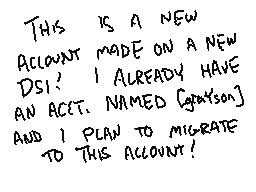 THIS IS A NEW
ACCOUNT MADE ON A NEW
DSI! I ALREADY HAVE
AN ACCT. NAMED [grayson]
AND I PLAN TO MIGRATE
TO THIS ACCOUNT!